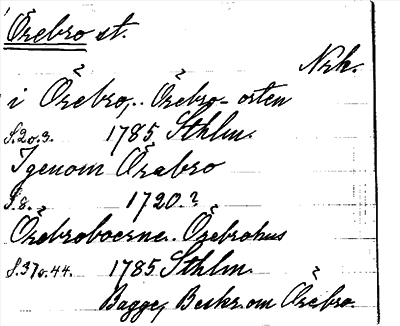 Örebro st.
Nrk.
i Örebro,.. Örebro-orten
S. 2 o. 3. 1785 Sthlm.
Igenom Örebro
S. 8. 1720.?
Örebroboerne. Örebrohus
S. 37 o. 44. 1785 Sthlm.
Bagge, Beskr. om Örebro.